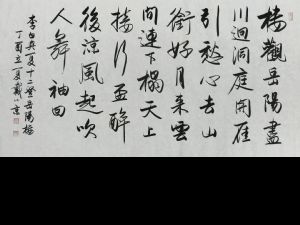 楼觀岳陽盡
川迥洞庭開雁
引愁心去山
銜好月來雲
間連下榻天上
接行盃醉
後涼風起吹
人舞袖回
李白與夏十二登岳陽樓
丁酉立夏